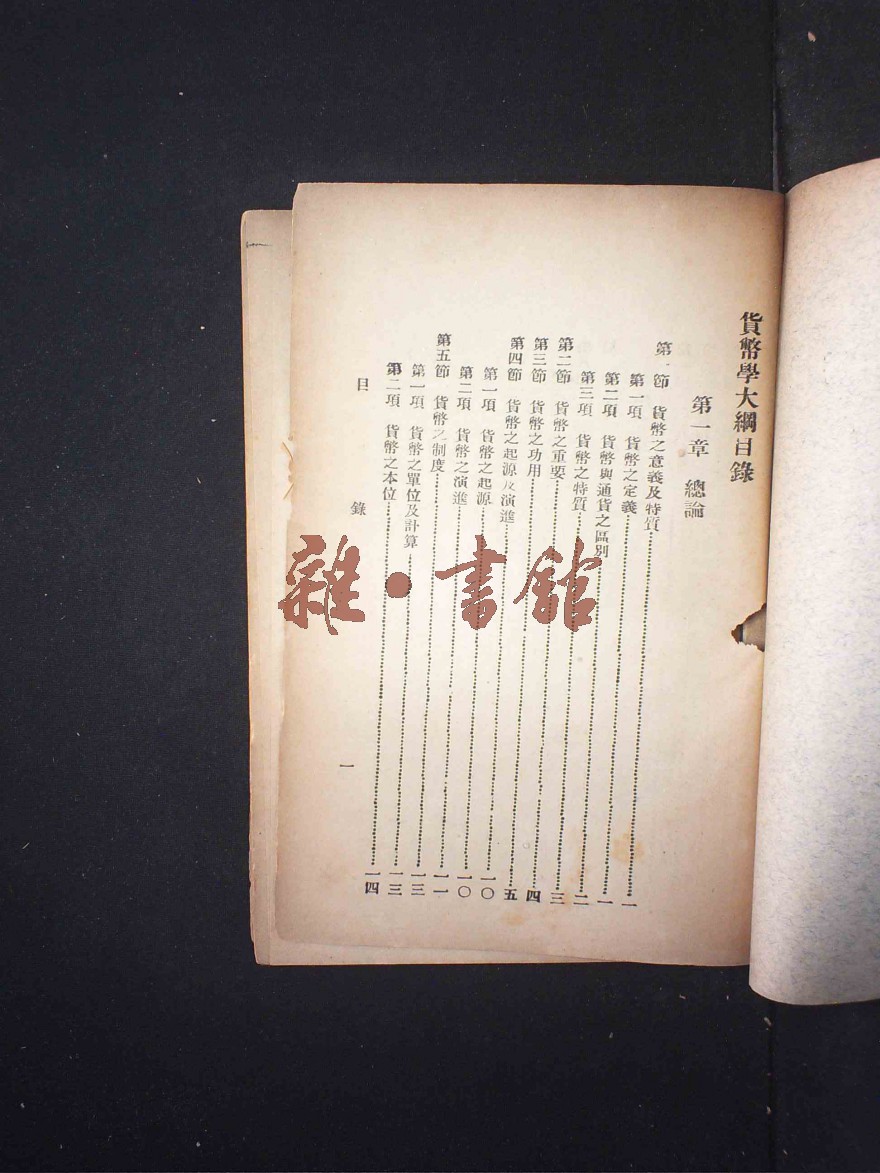 貨幣學大綱目錄
第一章 總論
第一節 貨幣之意義及特質……一
第一項 貨幣之定義……一
第二項 貨幣與通貨之區別……二
第三項 貨幣之特質……三
第二節 貨幣之重要……四
第三節 貨幣之功用……五
第四節 貨幣之起源及演進……一〇
第一項 貨幣之起源……一〇
第二項 貨幣之演進……一一
第五節 貨幣之制度……一三
第一項 貨幣之單位及計算……一三
第二項 貨幣之本位……一四
目錄 一
雜·書館